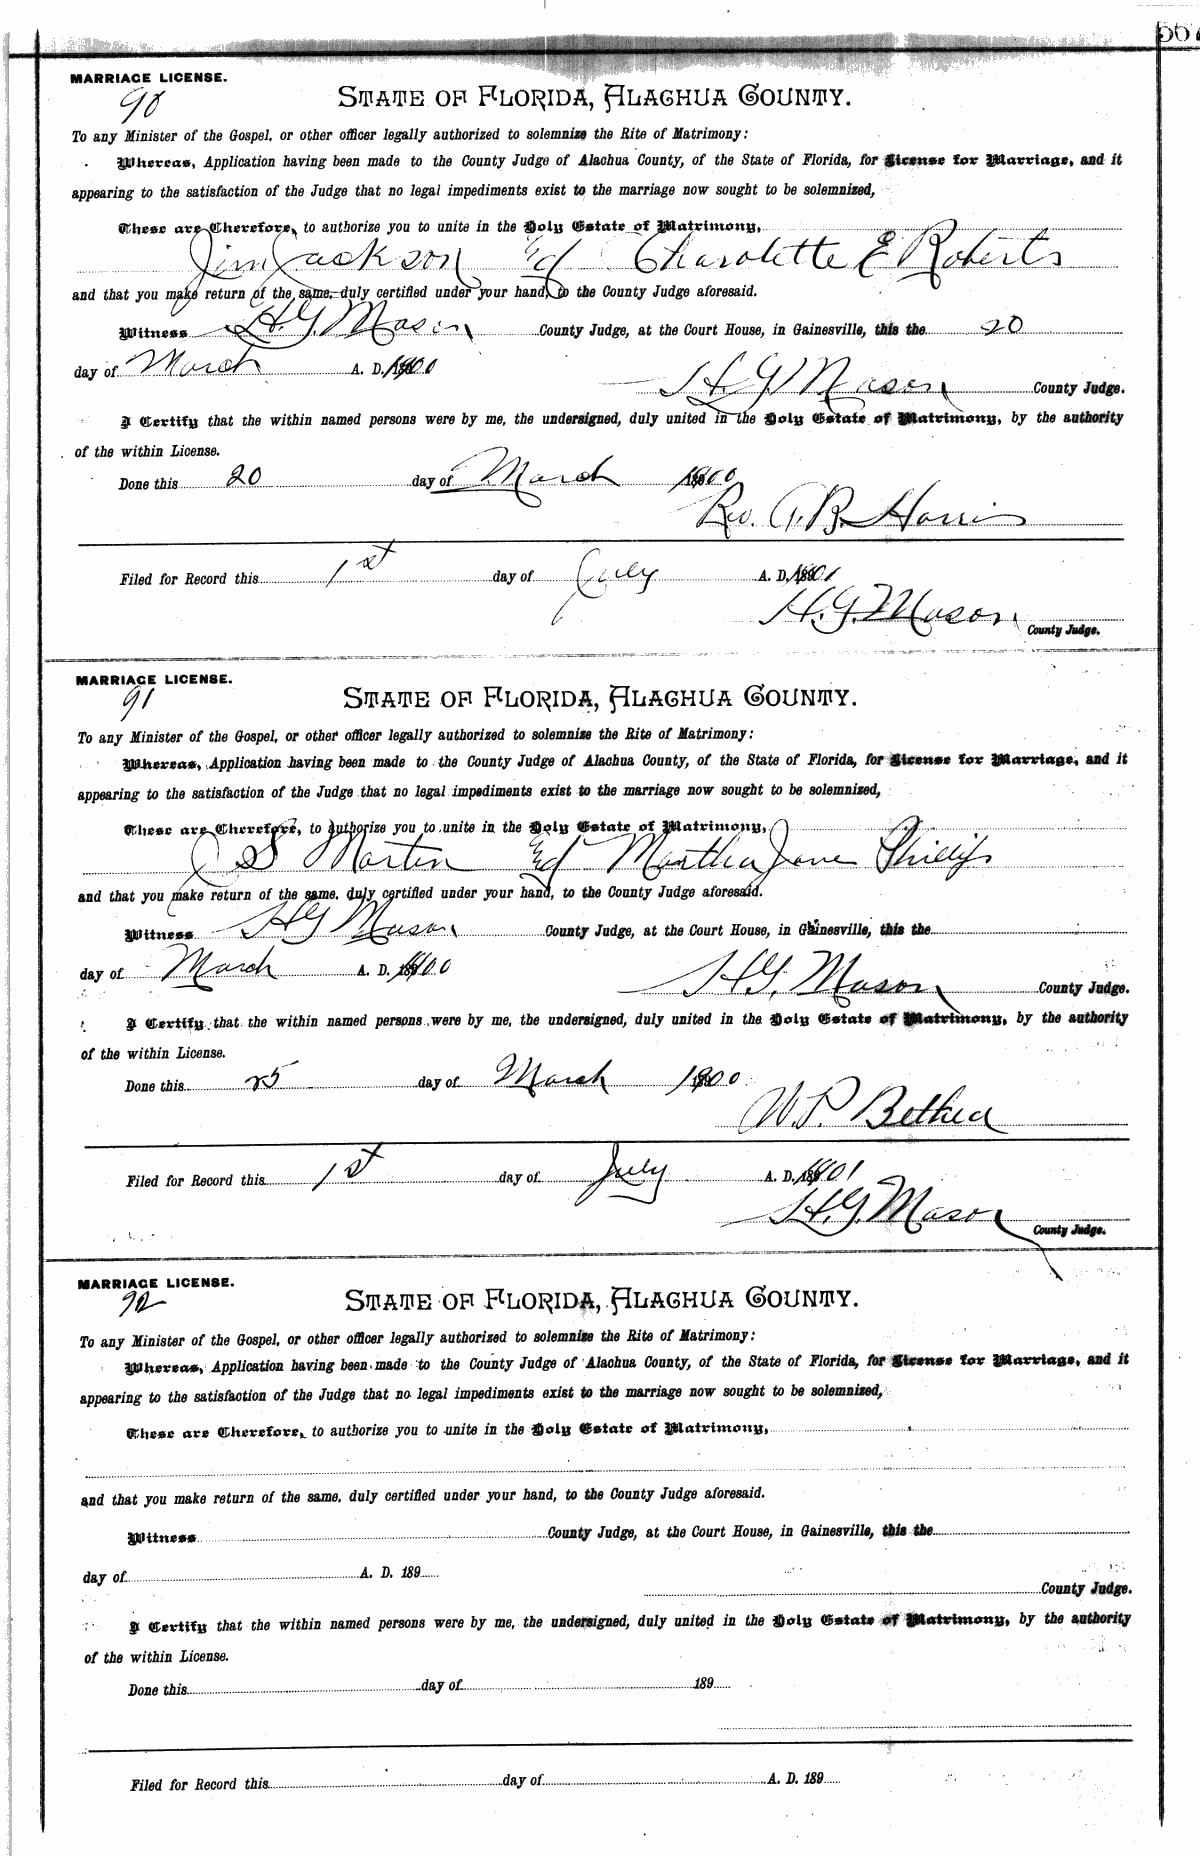 567
MARRIAGE LICENSE.
90
STATE OF FLORIDA, ALACHUA COUNTY.
To any Minister of the Gospel, or other officer legally authorized to solemnize the Rite of Matrimony:
Whereas, Application having been made to the County Judge of Alachua County, of the State of Florida, for License for Marriage, and it
appearing to the satisfaction of the Judge that no legal impediments exist to the marriage now sought to be solemnized,
These are Therefore, to authorize you to unite in the Holy Estate of Matrimony,
Jim Jackson & Charolette E Roberts
and that you make return of the same, duly certified under your hand, to the County Judge aforesaid.
Witness H. G. Mason County Judge, at the Court House, in Gainesville, this the 20
day of March A. D. 1900
H. G. Mason County Judge.
I Certify that the within named persons were by me, the undersigned, duly united in the Holy Estate of Matrimony, by the authority
of the within License.
Done this 20 day of March 1900
Rev. A. B. Harris
Filed for Record this 1st day of July A. D. 1901
H. G. Mason
County Judge.
MARRIAGE LICENSE.
91
STATE OF FLORIDA, ALACHUA COUNTY.
To any Minister of the Gospel, or other officer legally authorized to solemnize the Rite of Matrimony:
Whereas, Application having been made to the County Judge of Alachua County, of the State of Florida, for License for Marriage, and it
appearing to the satisfaction of the Judge that no legal impediments exist to the marriage now sought to be solemnized,
These are Therefore, to authorize you to unite in the Holy Estate of Matrimony,
J S Martin & Martha Jane Phillips
and that you make return of the same, duly certified under your hand, to the County Judge aforesaid.
Witness H G Mason County Judge, at the Court House, in Gainesville, this the
day of March A. D. 1900
H. G. Mason County Judge.
I Certify that the within named persons were by me, the undersigned, duly united in the Holy Estate of Matrimony, by the authority
of the within License.
Done this 25 day of March 1900
W. P. Bethea
Filed for Record this 1st day of July A. D. 1901
H. G. Mason
County Judge.
MARRIAGE LICENSE.
92
STATE OF FLORIDA, ALACHUA COUNTY.
To any Minister of the Gospel, or other officer legally authorized to solemnize the Rite of Matrimony:
Whereas, Application having been made to the County Judge of Alachua County, of the State of Florida, for License for Marriage, and it
appearing to the satisfaction of the Judge that no legal impediments exist to the marriage now sought to be solemnized,
These are Therefore, to authorize you to unite in the Holy Estate of Matrimony,
and that you make return of the same, duly certified under your hand, to the County Judge aforesaid.
Witness County Judge, at the Court House, in Gainesville, this the
day of A. D. 189
County Judge.
I Certify that the within named persons were by me, the undersigned, duly united in the Holy Estate of Matrimony, by the authority
of the within License.
Done this day of 189
Filed for Record this day of A. D. 189